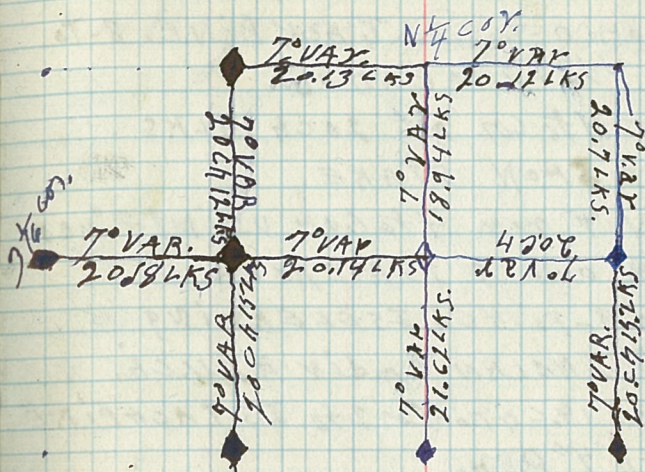 N 1/4 cor.
7° VAR.
20.13 LKS
7° VAR
20.12 LKS
7° VAR
20 CH 12 LKS
7° VAR
18.94 LKS
7° var
20.7 LKS.
1/4 cor.
7° VAR.
20.18 LKS
7° VAR
20.14 LKS
7° Var
20.C4
7° VAR
20 CH 15 LKS
7° VAR
21.62 LKS.
7° VAR.